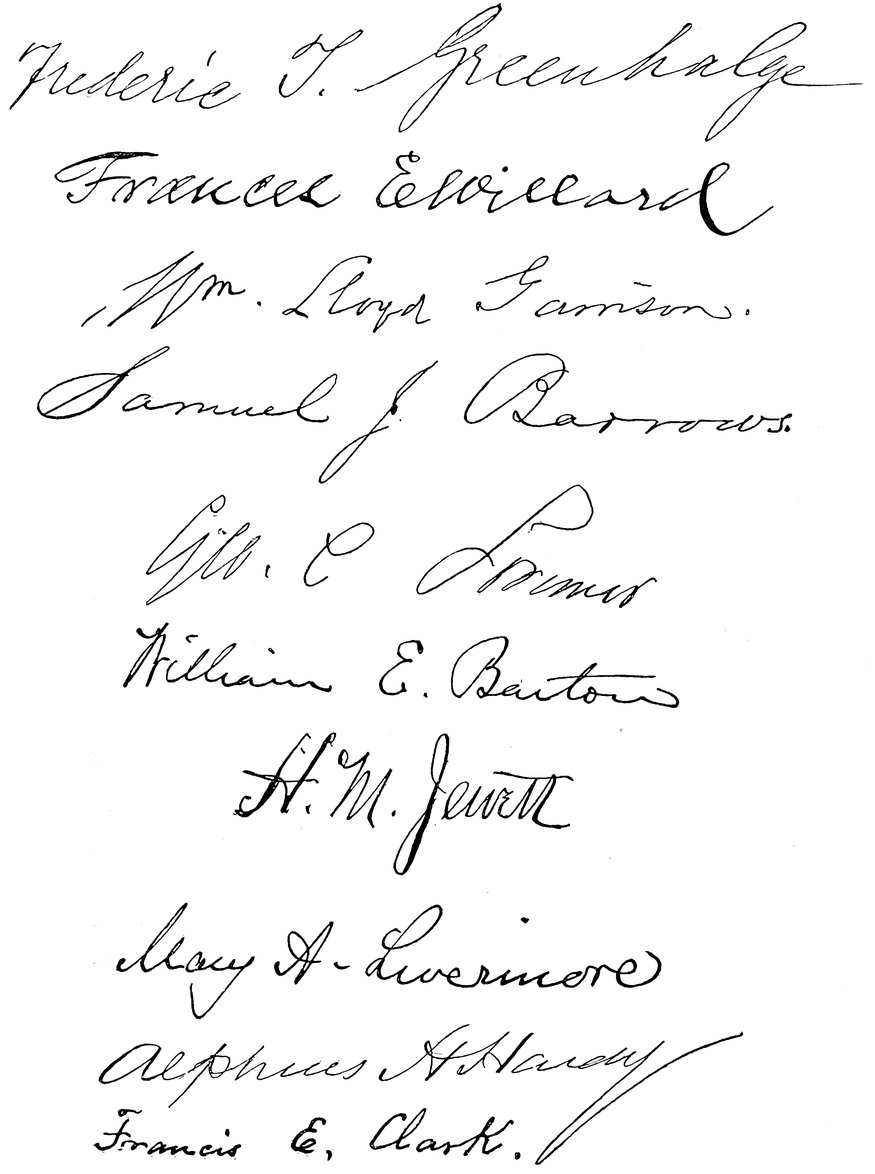 Frederic T. Greenhalge
Frances E Willard
Wm. Lloyd Garrison.
Samuel J. Barrows.
Geo. C Lorimer
William E. Barton
H. M. Jewett
Mary A. Livermore
Alpheus H Hardy
Francis E. Clark.